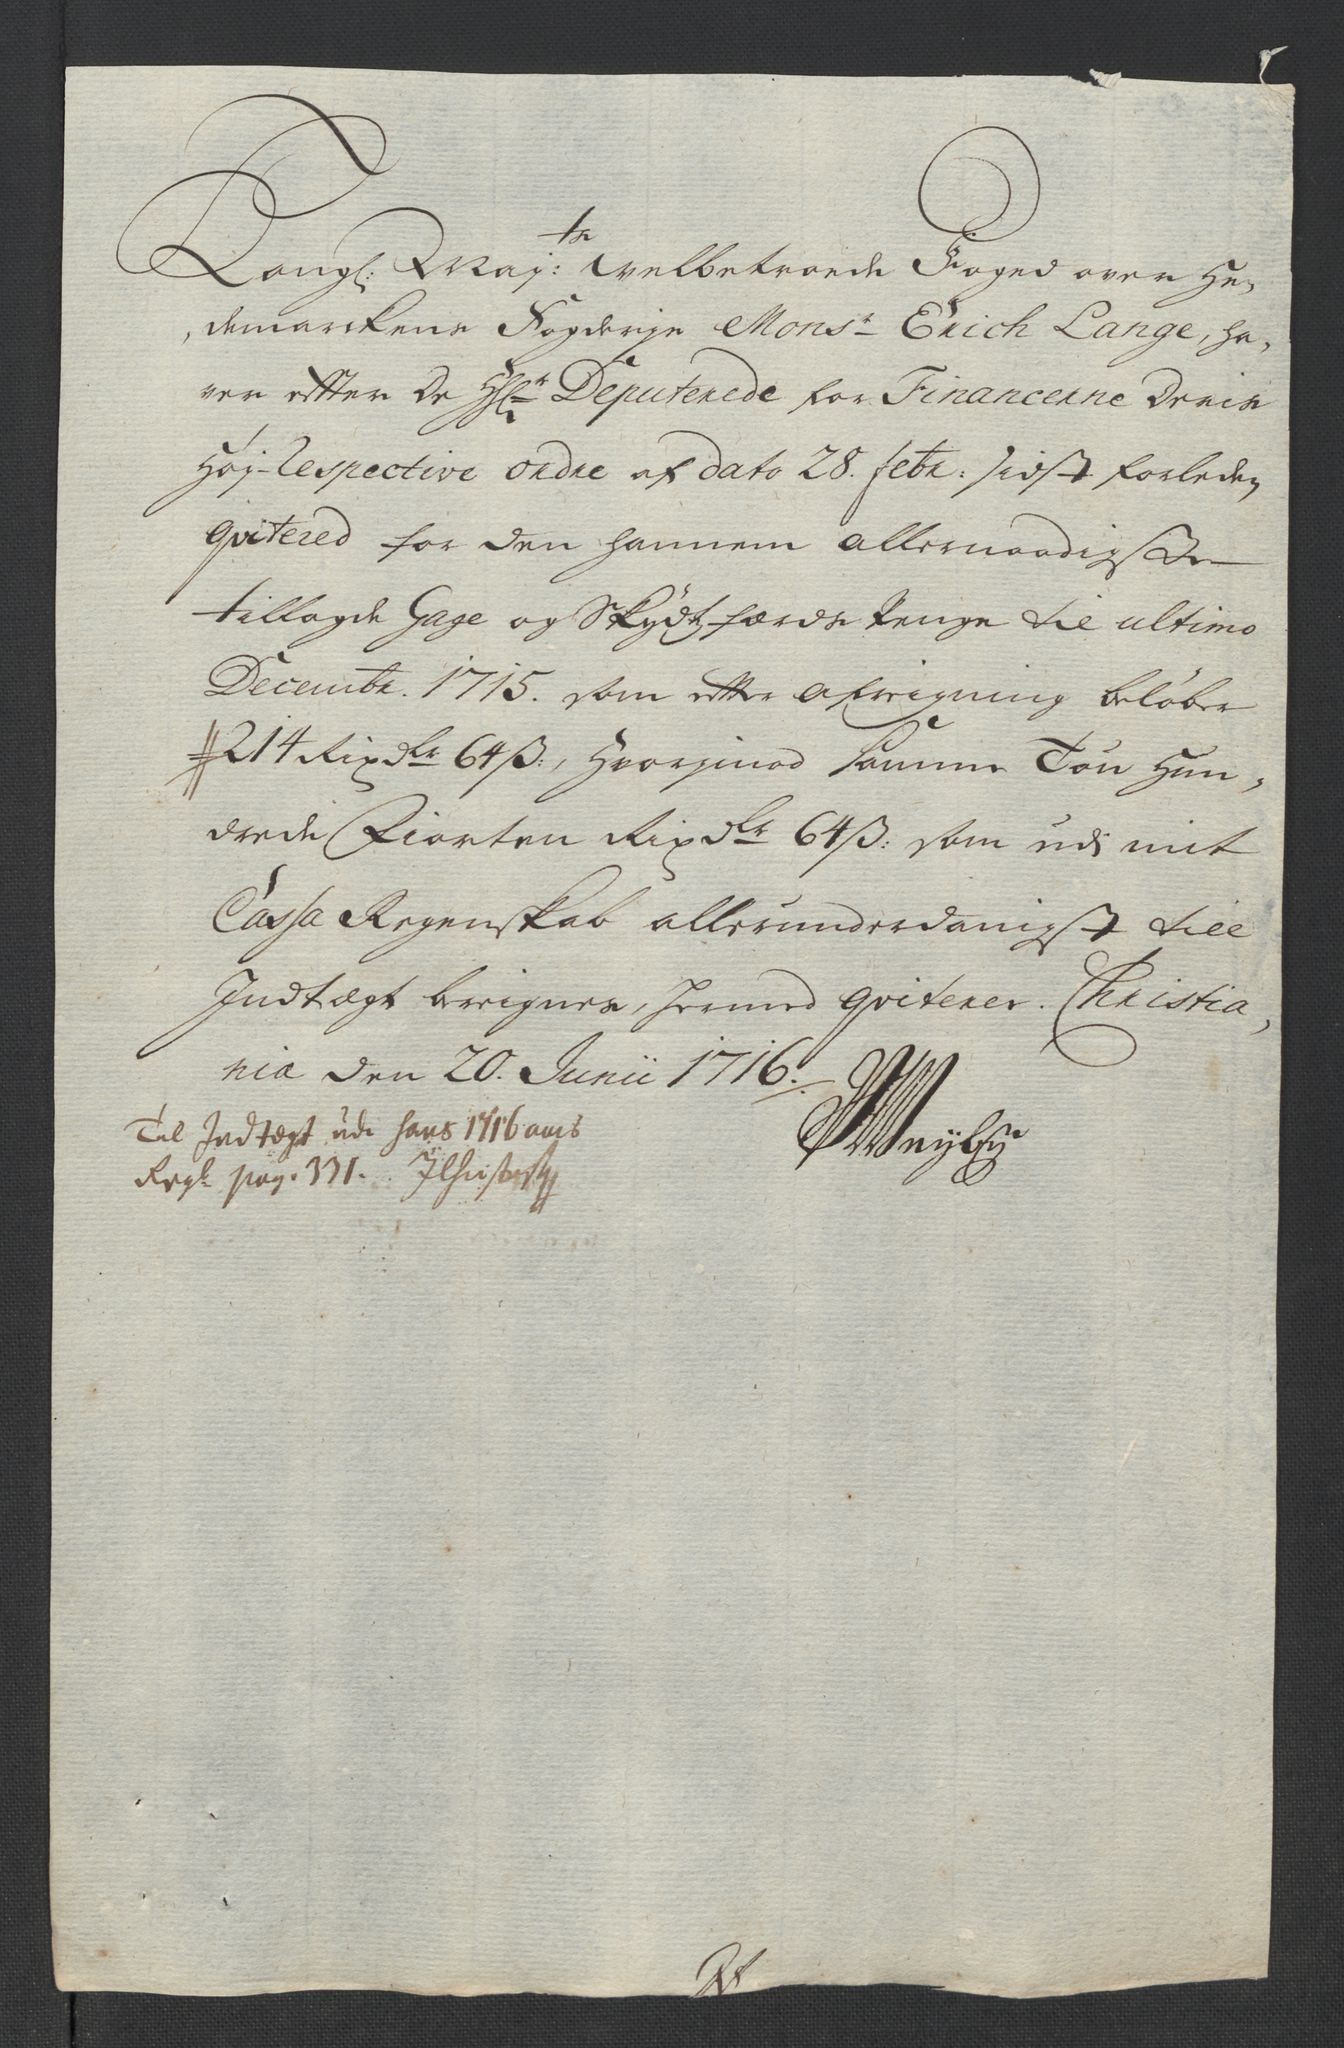 Kongl: Maÿ:ts Welbetroede Foged over He,
demarckens Fogderje Monsr Erich Lange, ha,
ver effter De Hl:r Deputerede for Financerne Deris
Høj-Respective ordre af dato 28. febr: sidst forleden
qvitered for den hannem allernaadigste
tillagde Gage og Skydtzfærds Penge til ultimo
Decembr. 1715. som effter afreigning beløber
214 Rixdlr 64 ß:, Hvorimod samme Tou Hun,
drede Fiorten Rixdlr 64 ß: som udi mit
Cassa Regenskab allerunderdanigst till
Indtægt bereignes, hermed qviterer. Christia,
nia den 20. Junii 1716.
Til Indtægt udi hans 1716 aars
Regl. pag. 331.